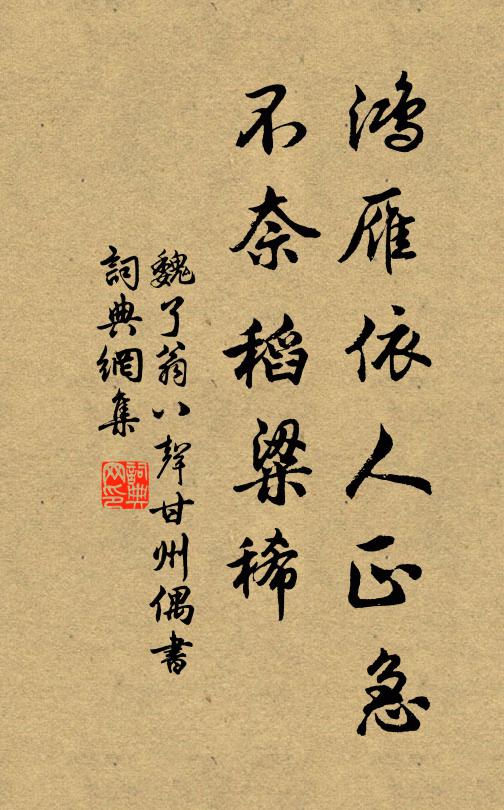 鴻雁依人正急
不奈稻粱稀
魏了翁八聲甘州偶書
詞典網集
詞典
网印